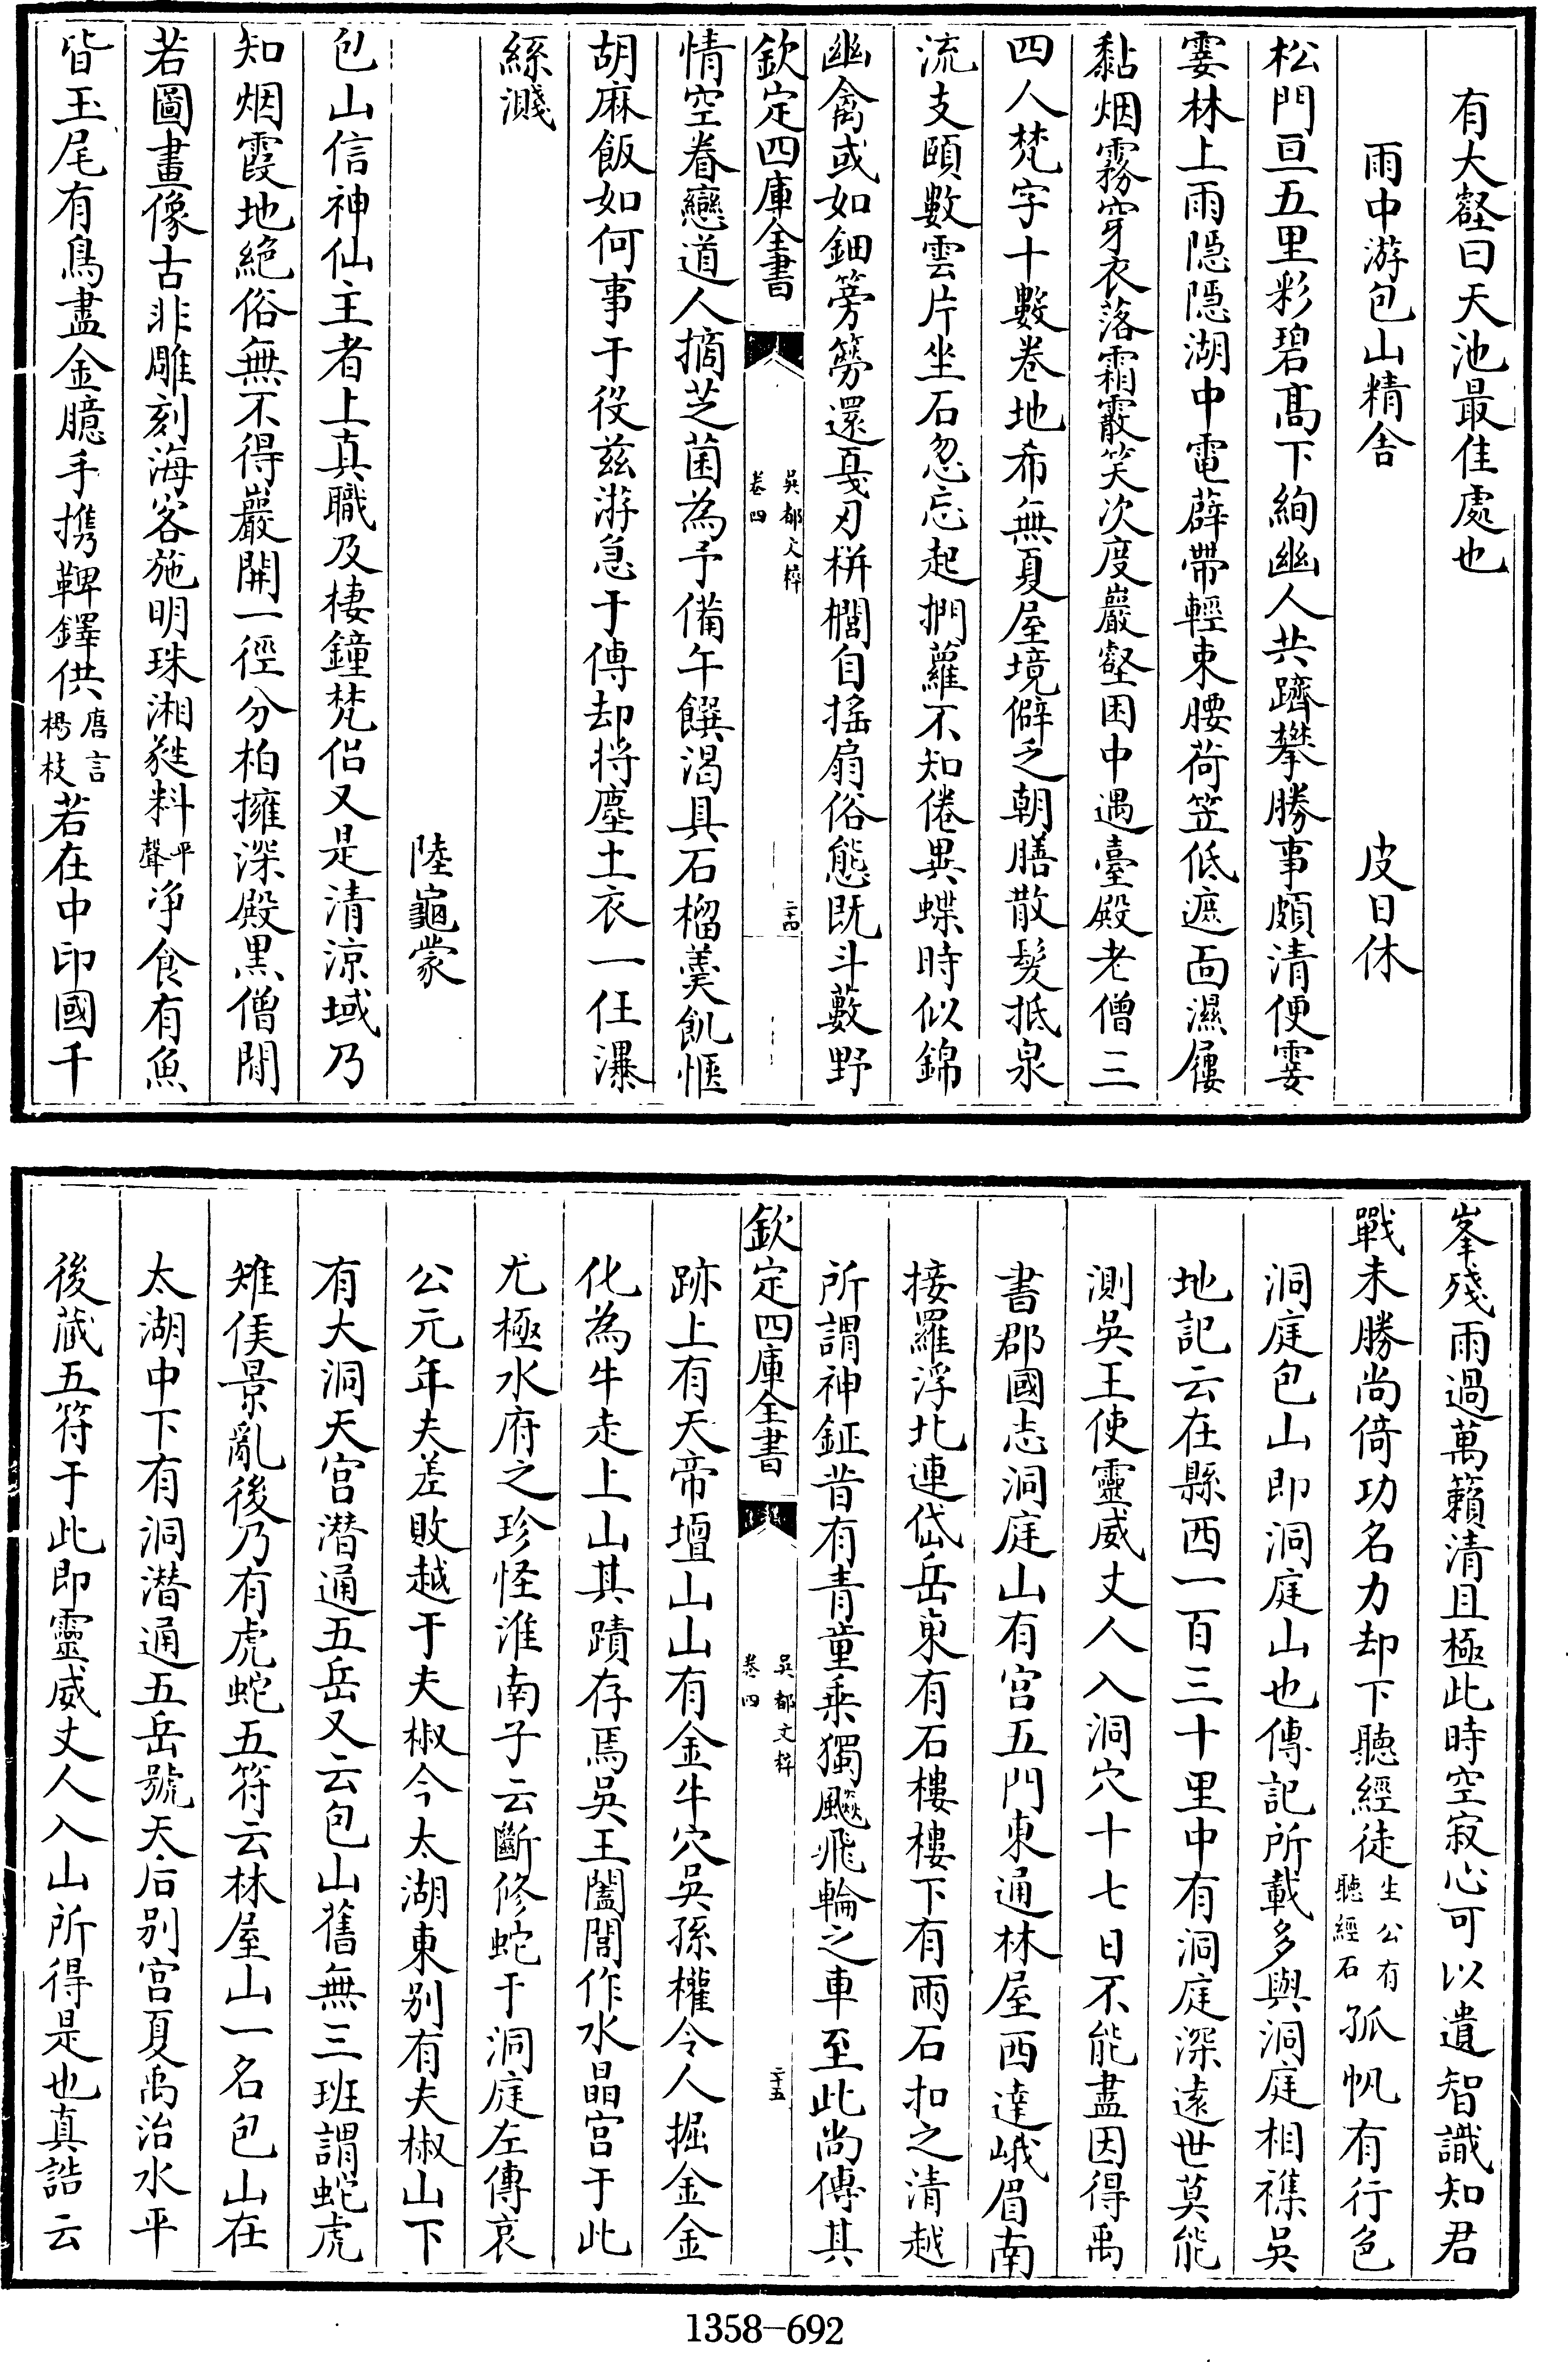 有大壑曰天池最佳處也
雨中游包山精舍 皮日休
松門亘五里彩碧髙下絢幽人共躋攀勝事頗清便霎
霎林上雨隠隠湖中電薜帶輕束腰荷笠低遮面濕屨
黏烟霧穿衣落霜霰笑次度巖壑困中遇臺殿老僧三
四人梵字十數卷地希無夏屋境僻乏朝膳散髮抵泉
流支頤數雲片坐石忽忘起捫蘿不知倦異蝶時似錦
幽禽或如鈿篣簩還戞刃栟櫚自搖扇俗態既斗藪野
欽定四庫全書 吳都文粹 卷四 二十四
情空眷戀道人摘芝菌為予備午饌渴具石榴羹飢愜
胡麻飯如何事于役兹游急于傳却将塵土衣一任瀑
絲濺
陸龜蒙
包山信神仙主者上真職及棲鐘梵侣又是清涼域乃
知烟霞地絶俗無不得巖開一徑分柏擁深殿黒僧閒
若圖畫像古非雕刻海客施明珠湘蕤料平聲浄食有魚
皆玉尾有鳥盡金臆手携鞞鐸供唐言楊枝若在中印國千
峯殘雨過萬籟清且極此時空寂心可以遺智識知君
戰未勝尚倚功名力却下聽經徒生公有聽經石孤帆有行色
洞庭包山即洞庭山也傳記所載多與洞庭相襍吳
地記云在縣西一百三十里中有洞庭深遠世莫能
測吳王使靈威丈人入洞穴十七日不能盡因得禹
書郡國志洞庭山有宫五門東通林屋西達峨眉南
接羅浮北連岱岳東有石樓樓下有兩石扣之清越
所謂神鉦昔有青童乗獨飈飛輪之車至此尚傳其
欽定四庫全書 吳都文粹 卷四 二十五
跡上有天帝壇山山有金牛穴吳孫權令人掘金金
化為牛走上山其蹟存焉吳王闔閭作水晶宫于此
尤極水府之珍怪淮南子云斷修蛇于洞庭左傳哀
公元年夫差敗越于夫椒今太湖東别有夫椒山下
有大洞天宫潛通五岳又云包山舊無三班謂蛇虎
雉侯景亂後乃有虎蛇五符云林屋山一名包山在
太湖中下有洞潛通五岳號天后别宫夏禹治水平
後蔵五符于此即靈威丈人入山所得是也真誥云
1358-692